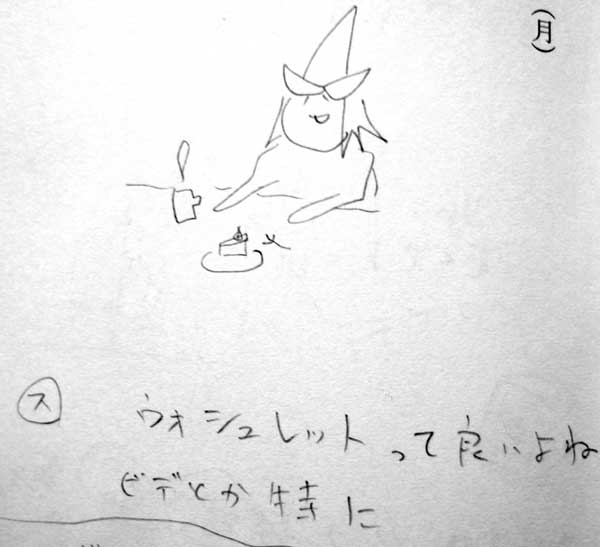 (月)
ス ウォシュレットって良いよね
ビデとか特に